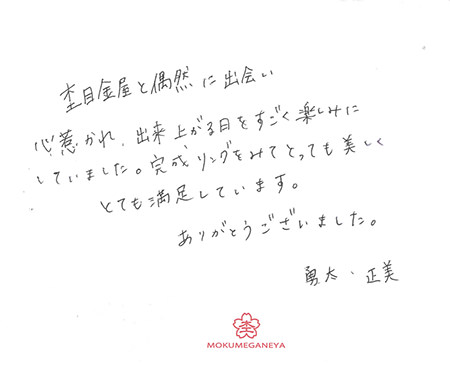 杢目金屋と偶然に出会い
心惹かれ、出来上がる日をすごく楽しみに
していました。完成リングをみてとっても美しく
とても満足しています。
ありがとうございました。
勇太・正美
杢
MOKUMEGANEYA